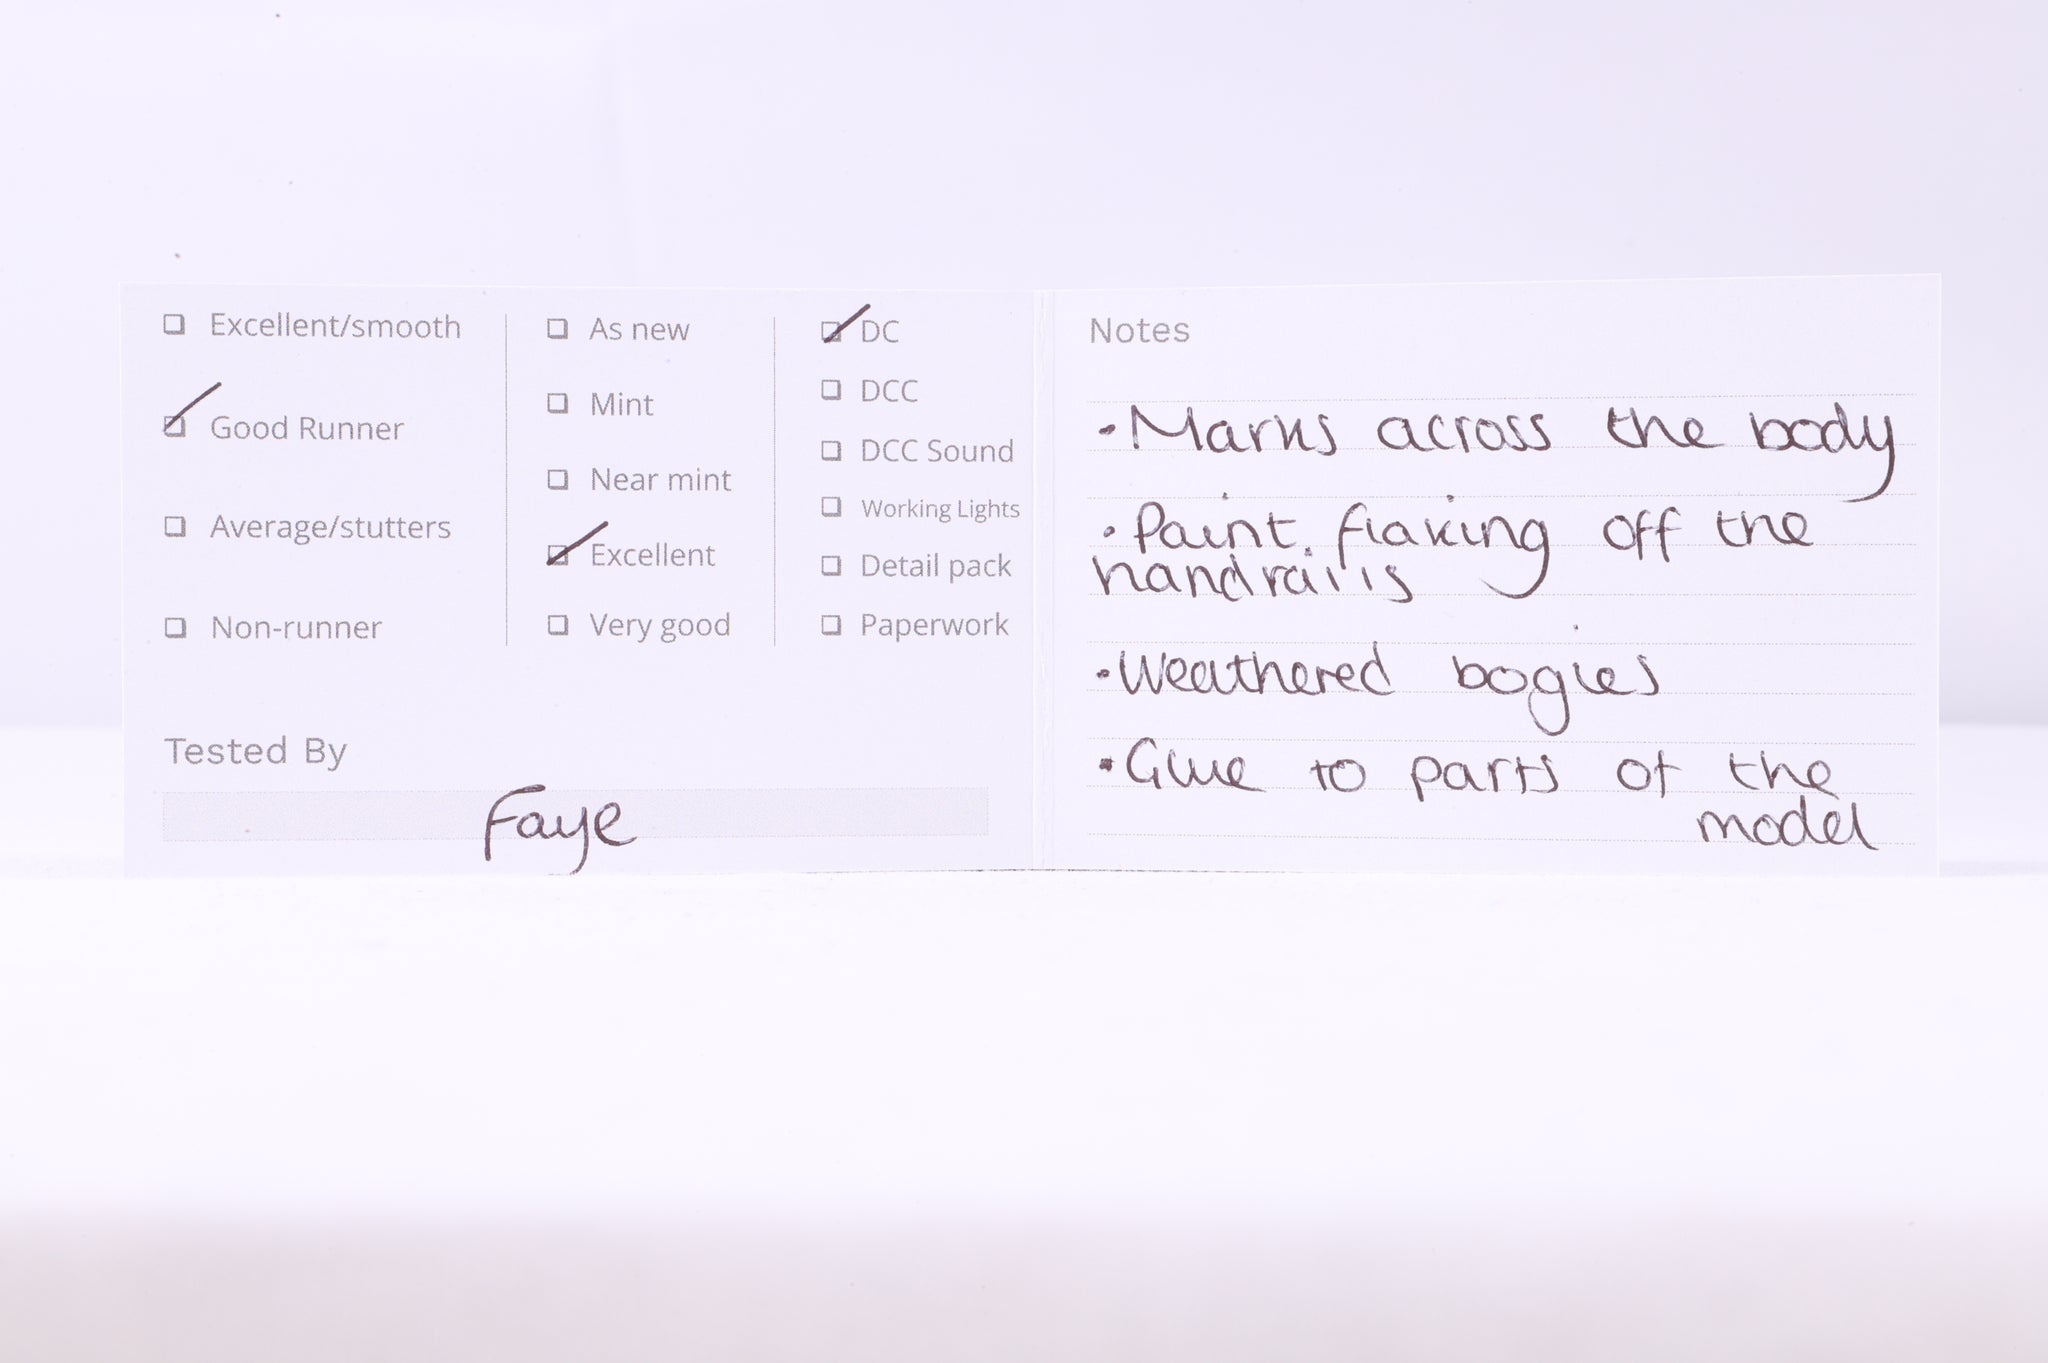 Excellent/smooth
Good Runner
Average/stutters
Non-runner
As new
Mint
Near mint
Excellent
Very good
DC
DCC
DCC Sound
Working Lights
Detail pack
Paperwork
Tested By
Faye
Notes
• Marks across the body
• Paint flaking off the
handrails
• Weathered bogies
• Glue to parts of the
model